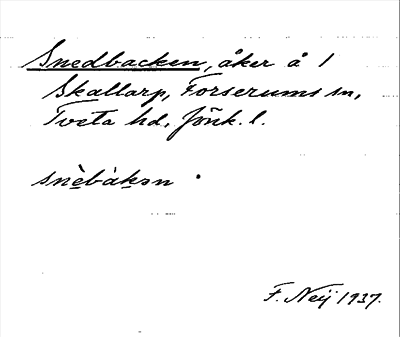 Snedbacken, åker å 1
Skallarp, Forserums sn,
Tveta hd, Jönk. l.
snèbàkən
F. Neij 1937.